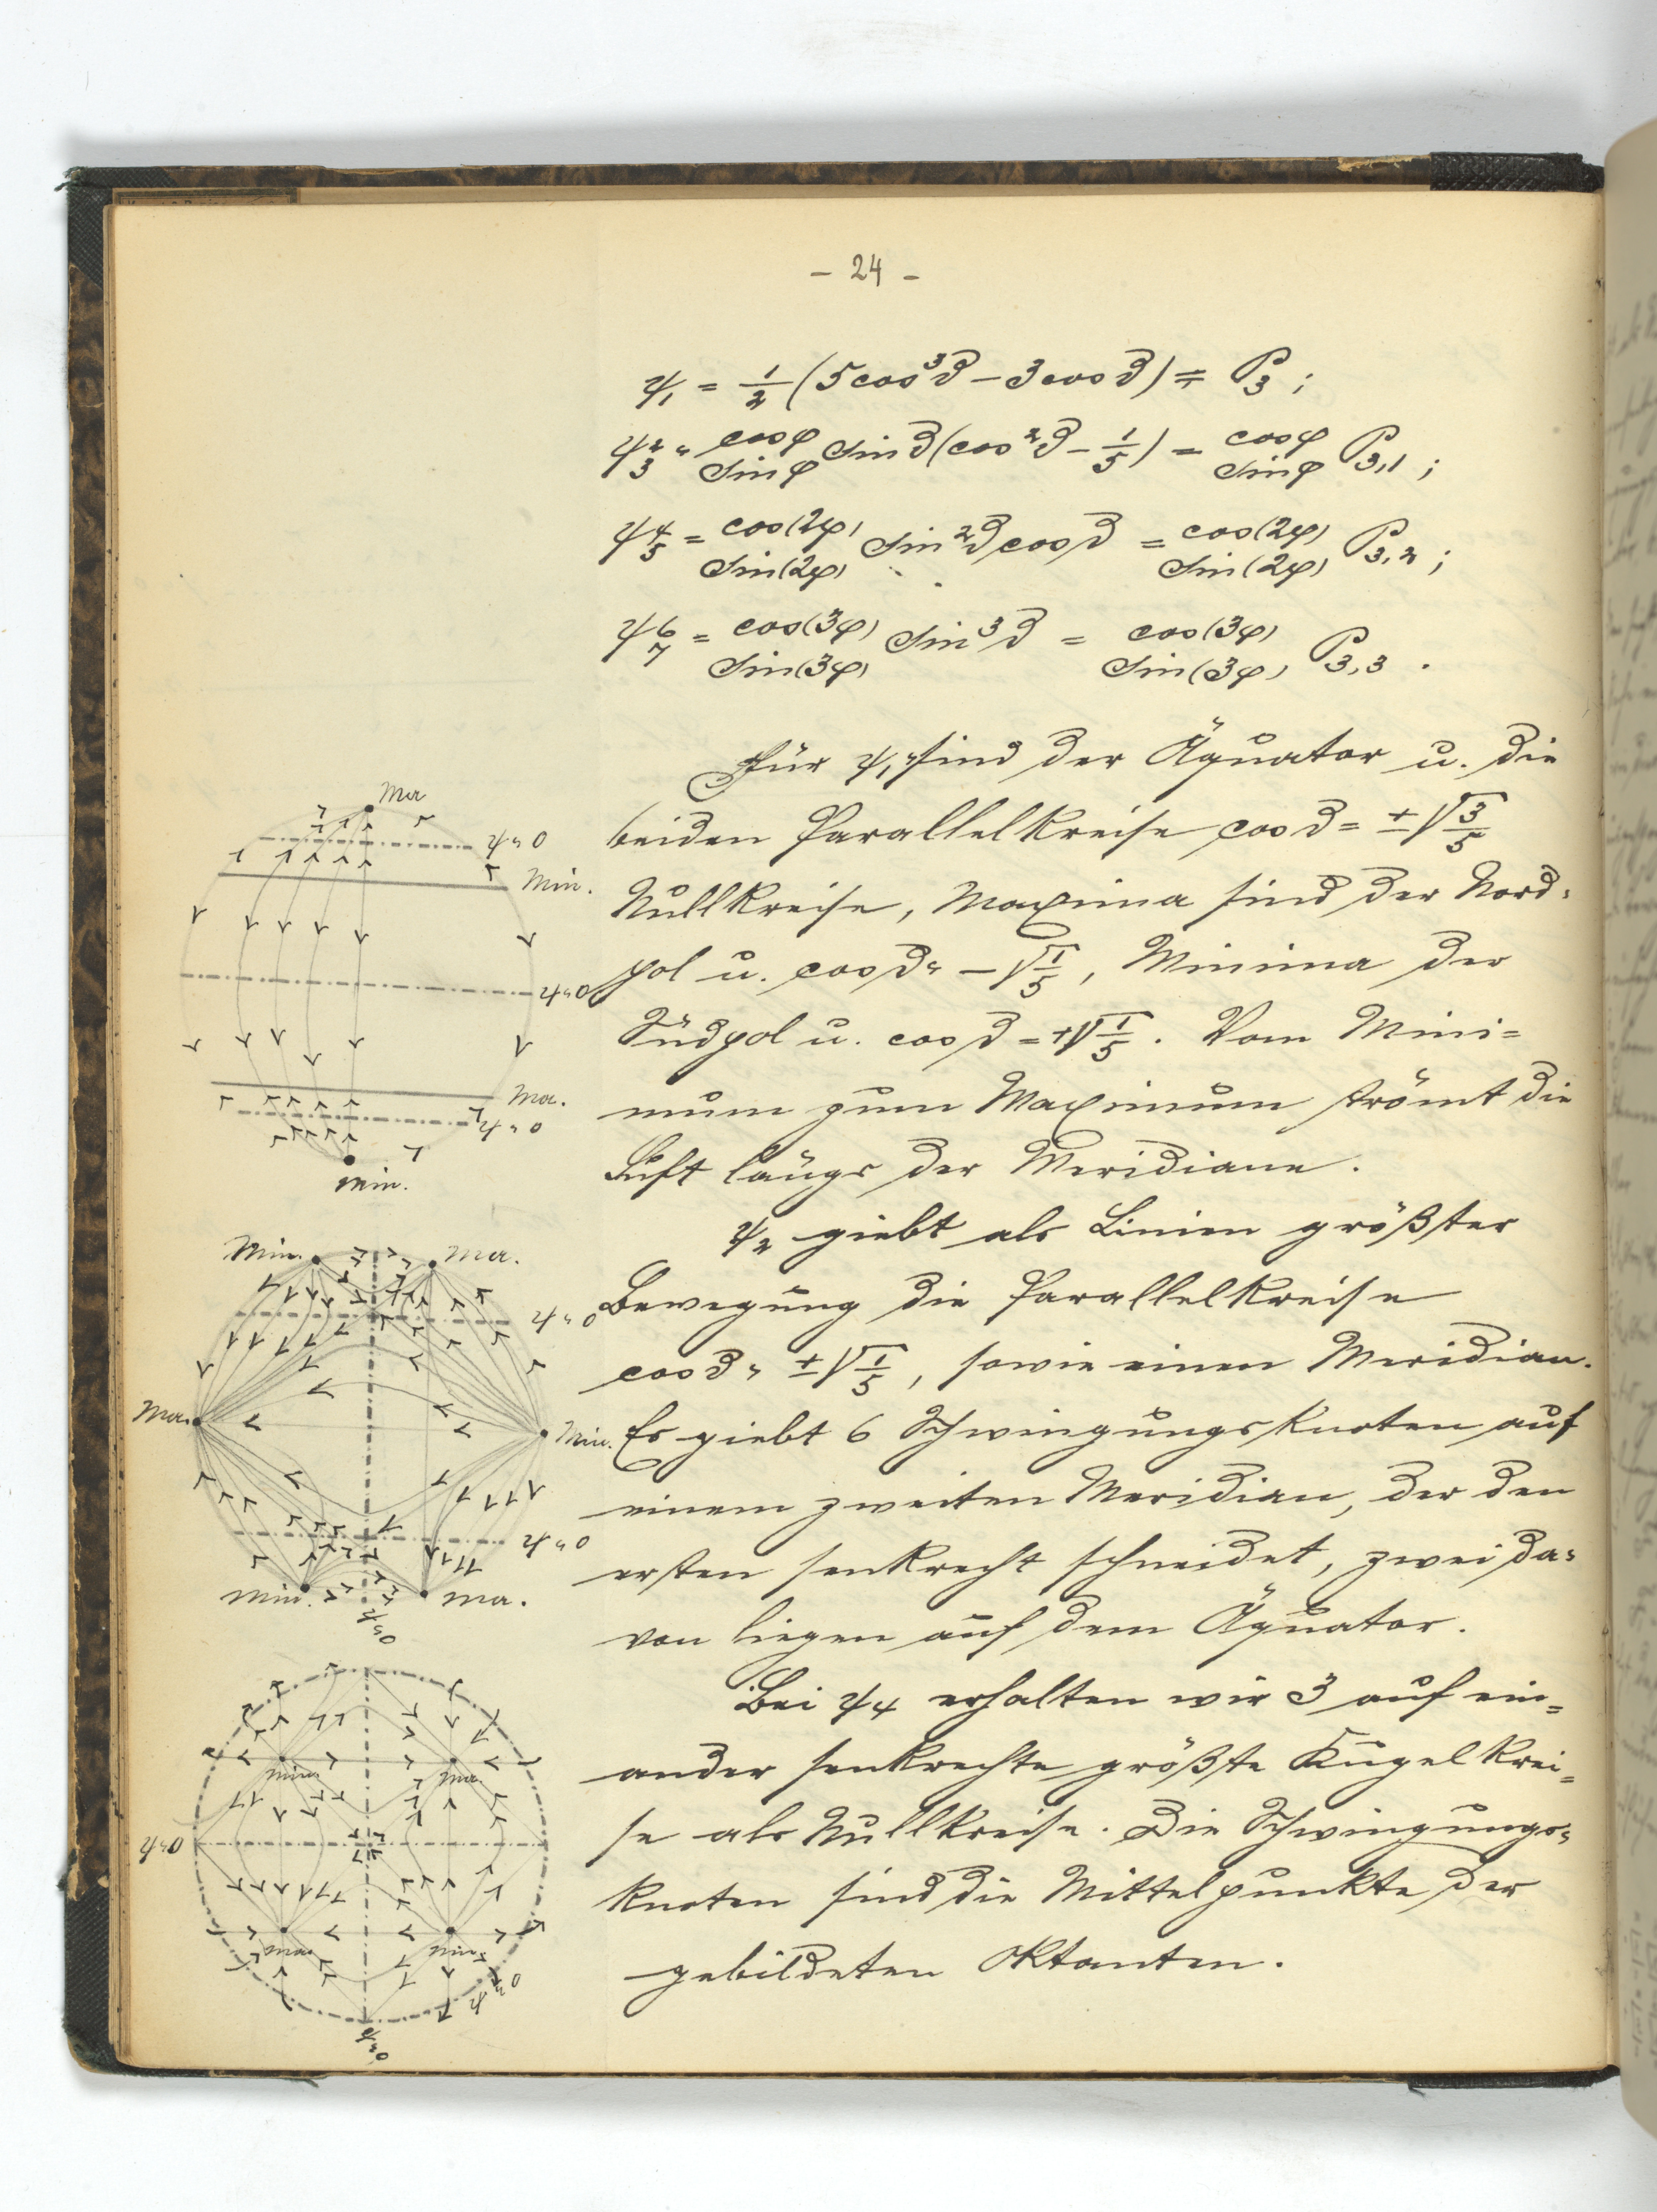 - 24 -
ψ₁ = 1/2 (5 cos³ϑ – 3 cos ϑ) = P₃ ;
ψ 2/3 = cos φ / sin φ sin ϑ (cos²ϑ – 1/5) = cos φ / sin φ P₃,₁ ;
ψ 4/5 = cos(2φ) / sin(2φ) sin²ϑ cos ϑ = cos(2φ) / sin(2φ) P₃,₂ ;
ψ 6/7 = cos(3φ) / sin(3φ) sin³ϑ = cos(3φ) / sin(3φ) P₃,₃ .
Für ψ₁ sind der Äquator u. die
beiden Parallelkreise cos ϑ = ±√3/5
Nullkreise, Maxima sind der Nord=
pol u. cos ϑ = –√1/5, Minima der
Südpol u. cos ϑ = +√1/5. Vom Mini=
mum zum Maximum strömt die
Luft längs der Meridiane.
ψ₂ giebt als Linien größter
Bewegung die Parallelkreise
cos ϑ = ±√1/5, sowie einen Meridian.
Es giebt 6 Schwingungsknoten auf
einem zweiten Meridian, der den
ersten senkrecht schneidet, zwei da=
von liegen auf dem Äquator.
Bei ψ₄ erhalten wir 3 auf ein=
ander senkrechte größte Kugelkrei=
se als Nullkreise. Die Schwingungs=
knoten sind die Mittelpunkte der
gebildeten Oktanten.
Ma
ψ=0
Min.
ψ=0
Ma.
ψ=0
Min.
Min.
Ma.
ψ=0
Ma.
Min.
ψ=0
Min.
Ma.
ψ=0
Min.
Ma.
ψ=0
Ma.
Min.
ψ=0
ψ=0